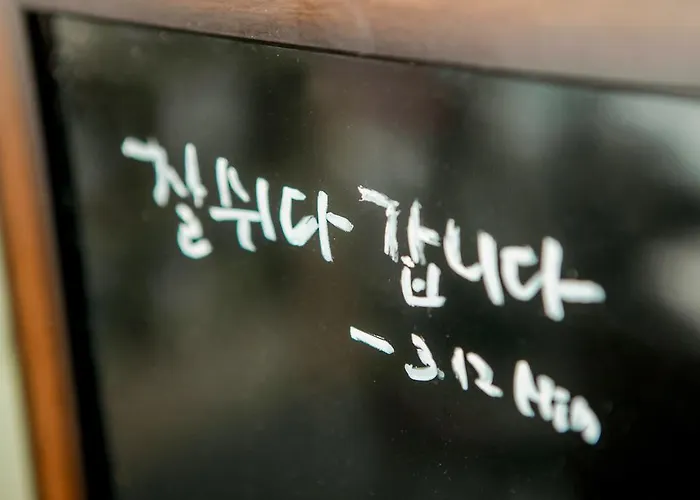 잘쉬다 갑니다
- 3.12